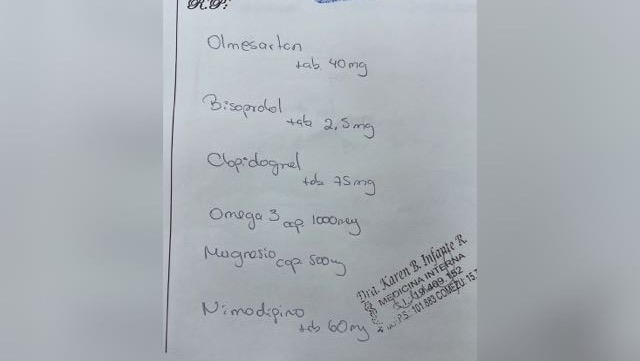 R.P:
Olmesartan
tab 40mg
Bisoprolol
tab 2,5mg
Clopidogrel
tab 75mg
Omega 3 cap 1000mg
Magnesio cap 500mg
Nimodipino
tab 60mg
Dra. Karen B. Infante R
MEDICINA INTERNA